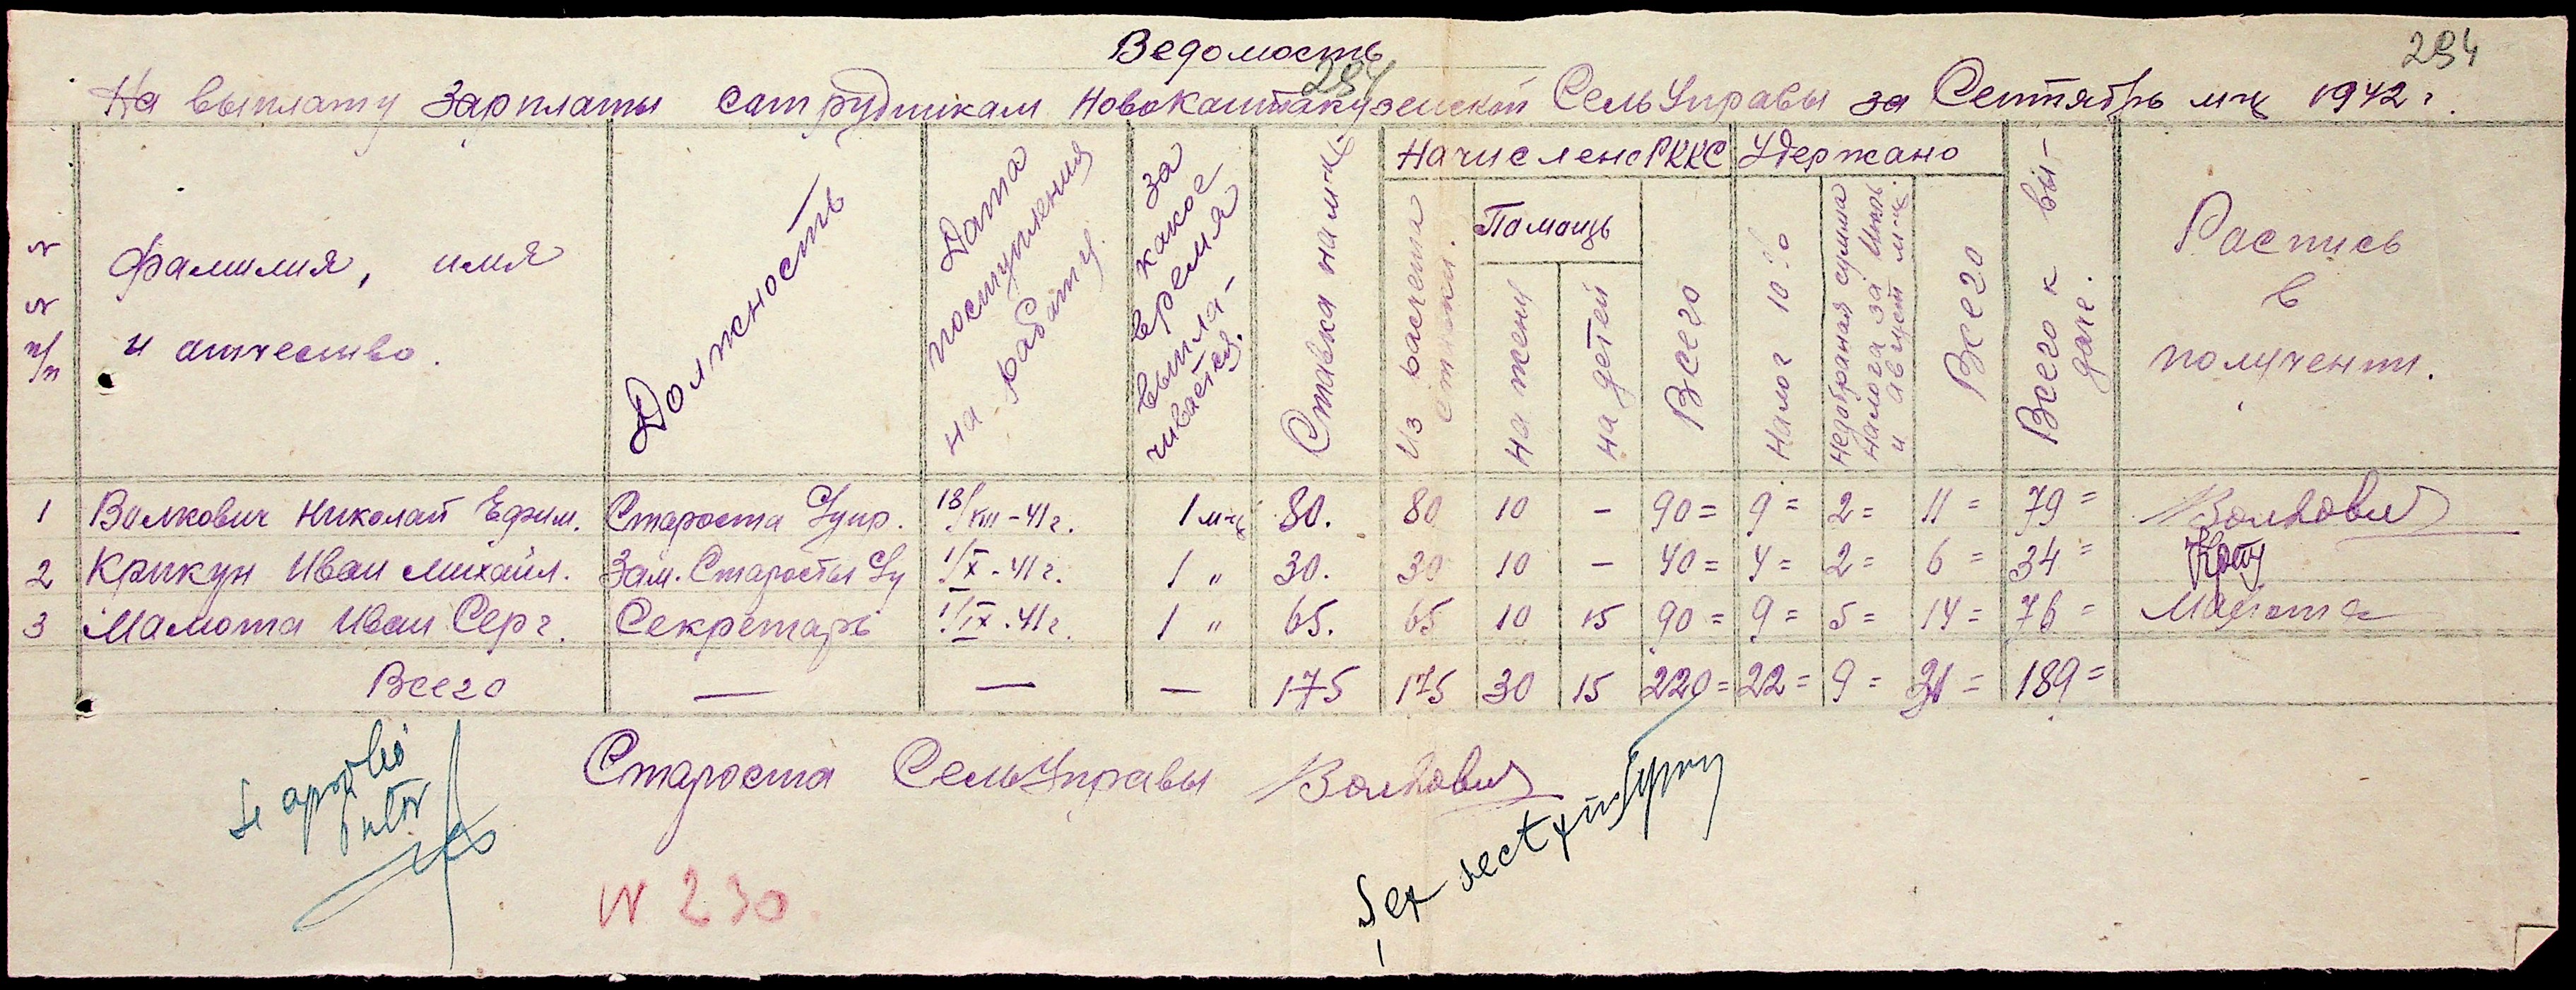 Ведомость
294
294
На выплату Зарплаты сотрудникам Новокантакузенской СельУправы за Сентябрь м-ц 1942 г.
№ № п/п
Фамилия, имя и отчество.
Должность
Дата поступления на работу.
за какое время выплачивается.
Ставка на м-ц
Начислено РККС
Из расчета ставки.
Помощь
на жену
на детей
Всего
Удержано
Налог 10%
Недобранная сумма налога за Июль и август м-ц.
Всего
Всего к выдаче.
Роспись в получении.
1 Волкович Николай Ефим. Староста Упр. 13/VIII-41г. 1 м-ц 80. 80 10 - 90= 9= 2= 11= 79= Волкович
2 Крикун Иван Михайл. Зам. Старосты Су 1/X-41г. 1 " 30. 30 10 - 40= 4= 2= 6= 34=
3 Мамота Иван Серг. Секретарь 1/IX.41г. 1 " 65. 65 10 15 90= 9= 5= 14= 76= Мамота
Всего — — — 175 175 30 15 220= 22= 9= 31= 189=
Se aprobă
Староста СельУправы Волкович
N 230.
Șef sect